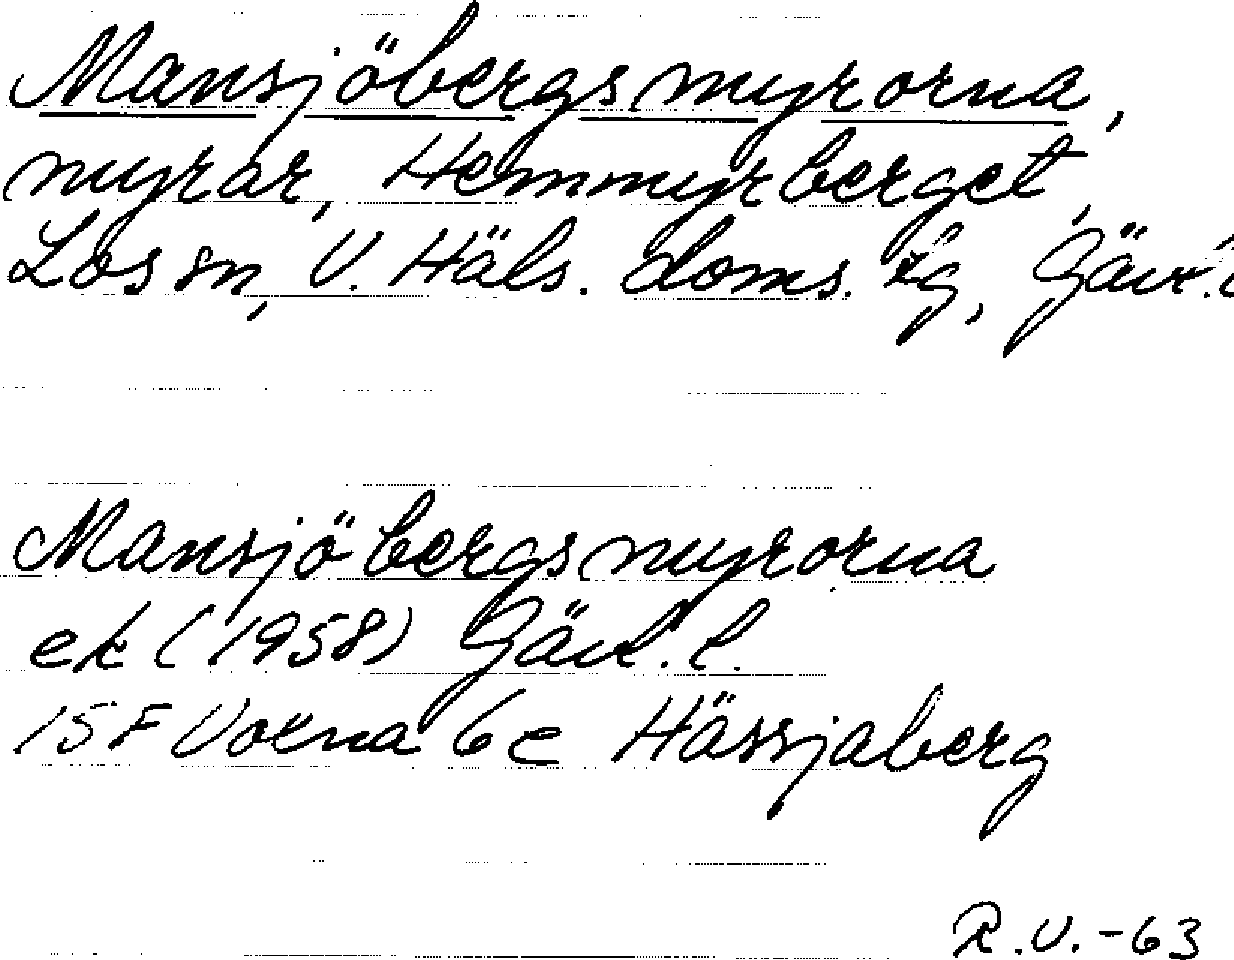 Mansjöbergsmyrorna,
myrar, Hemmyrberget,
Los sn, V. Häls. doms. fg, Gävl. l
Mansjöbergsmyrorna
ek (1958) Gävl. l.
15F Voxna 6e Hässjaberg
R.V.-63